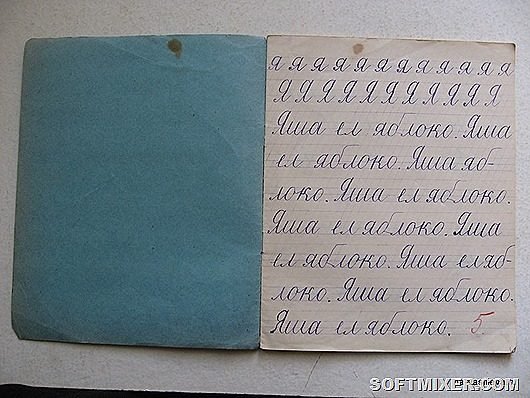 я я я я я я я я я я я я
Я Я Я Я Я Я Я Я Я Я Я
Яша ел яблоко. Яша
ел яблоко. Яша яб-
локо. Яша ел яблоко.
Яша ел яблоко. Яша
ел яблоко. Яша ел яб-
локо. Яша ел яблоко.
Яша ел яблоко. 5
SOFTMIXER.COM